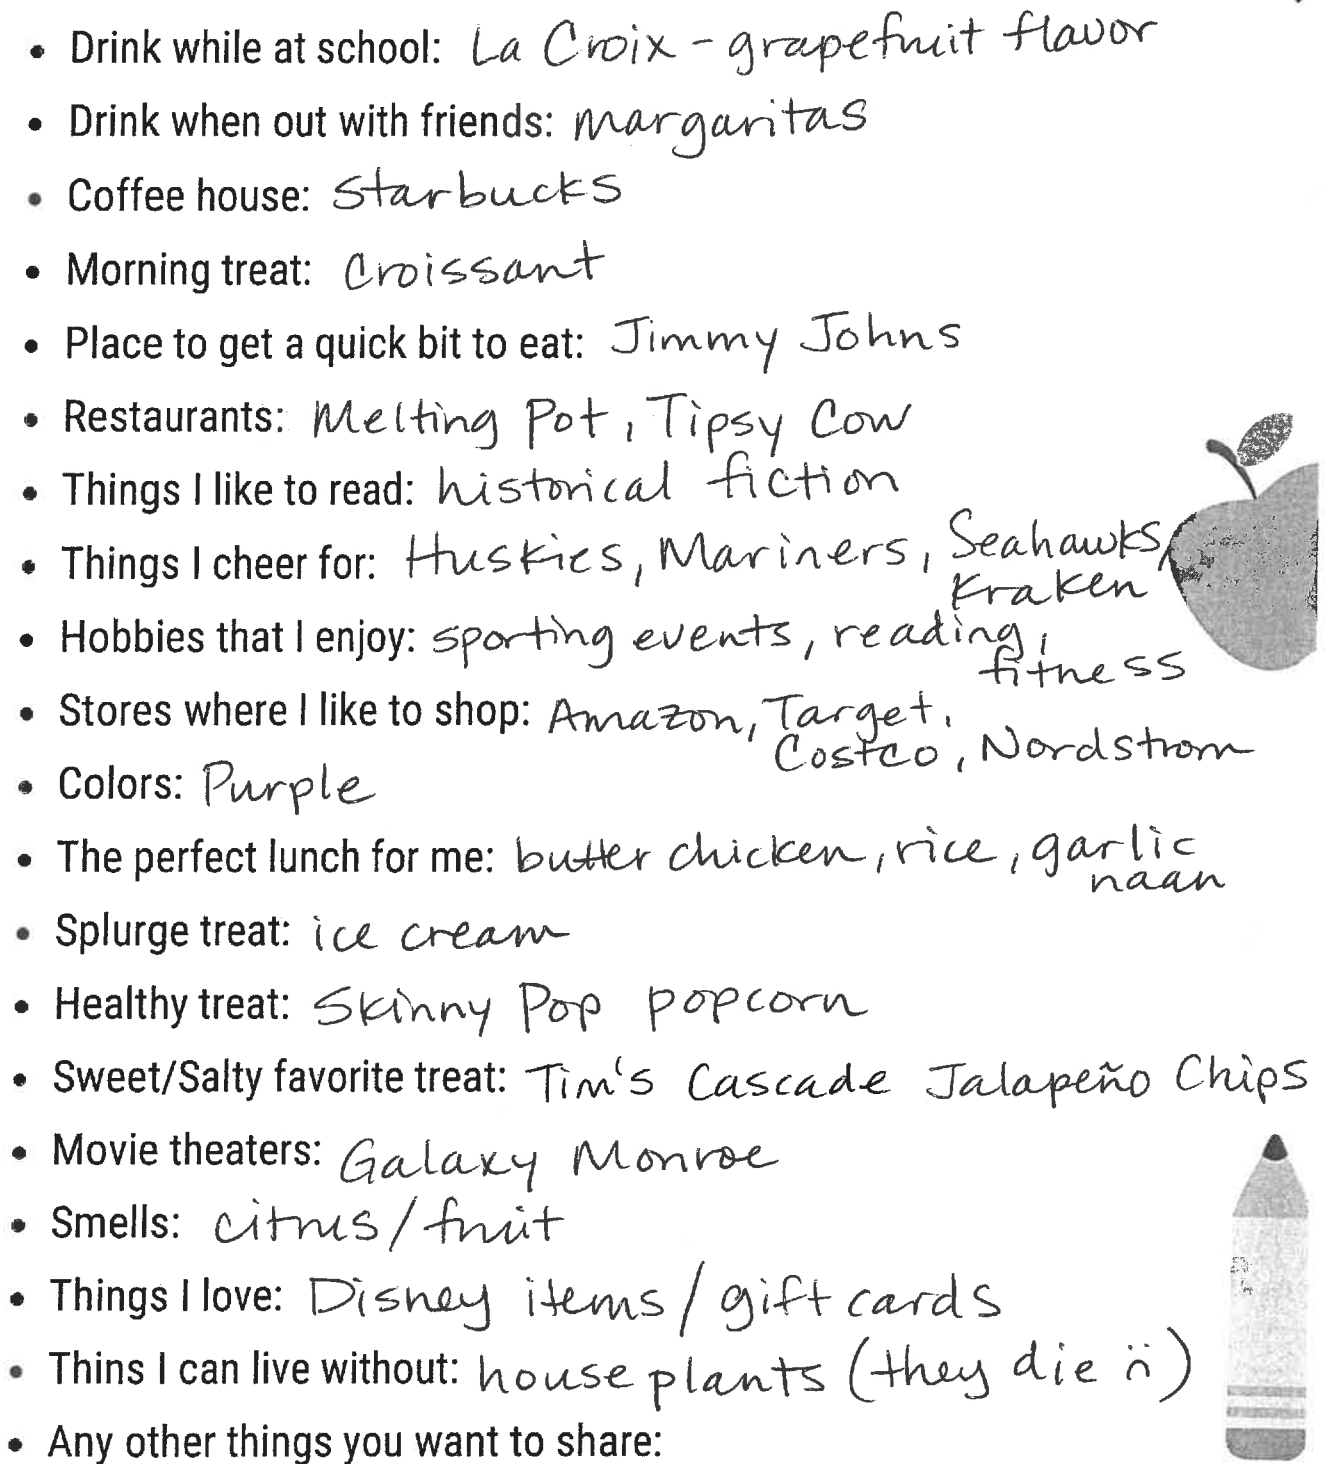 • Drink while at school: La Croix - grapefruit flavor
• Drink when out with friends: margaritas
• Coffee house: Starbucks
• Morning treat: Croissant
• Place to get a quick bit to eat: Jimmy Johns
• Restaurants: Melting Pot, Tipsy Cow
• Things I like to read: historical fiction
• Things I cheer for: Huskies, Mariners, Seahawks,
Kraken
• Hobbies that I enjoy: sporting events, reading,
fitness
• Stores where I like to shop: Amazon, Target,
Costco, Nordstrom
• Colors: Purple
• The perfect lunch for me: butter chicken, rice, garlic
naan
• Splurge treat: ice cream
• Healthy treat: Skinny Pop popcorn
• Sweet/Salty favorite treat: Tim's Cascade Jalapeño Chips
• Movie theaters: Galaxy Monroe
• Smells: citrus/fruit
• Things I love: Disney items/gift cards
• Thins I can live without: house plants (they die :()
• Any other things you want to share: